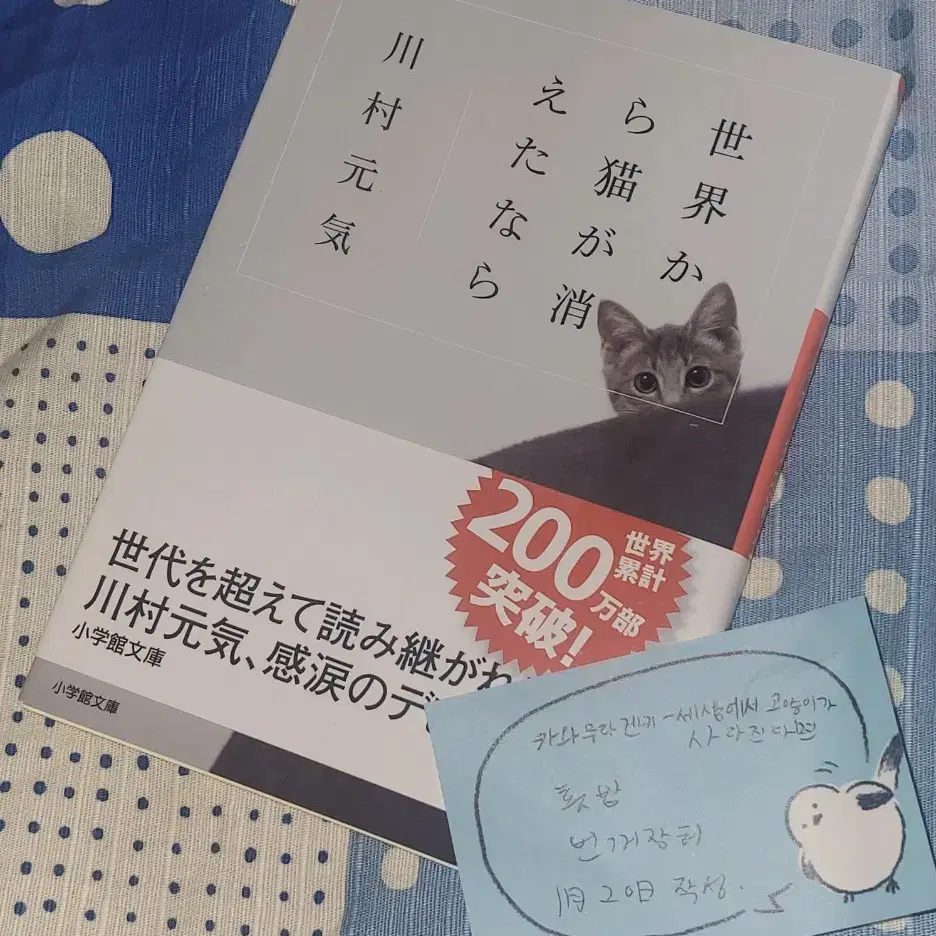 世界か
ら猫が消
えたなら
川村元気
200万部
世界
累計
突破!
世代を超えて読み継がれ
川村元気、感涙のデ
小学館文庫
小学館文庫
카와무라 겐키 - 세상에서 고양이가
사라진다면
횻밤
번개장터
1月 20日 작성.